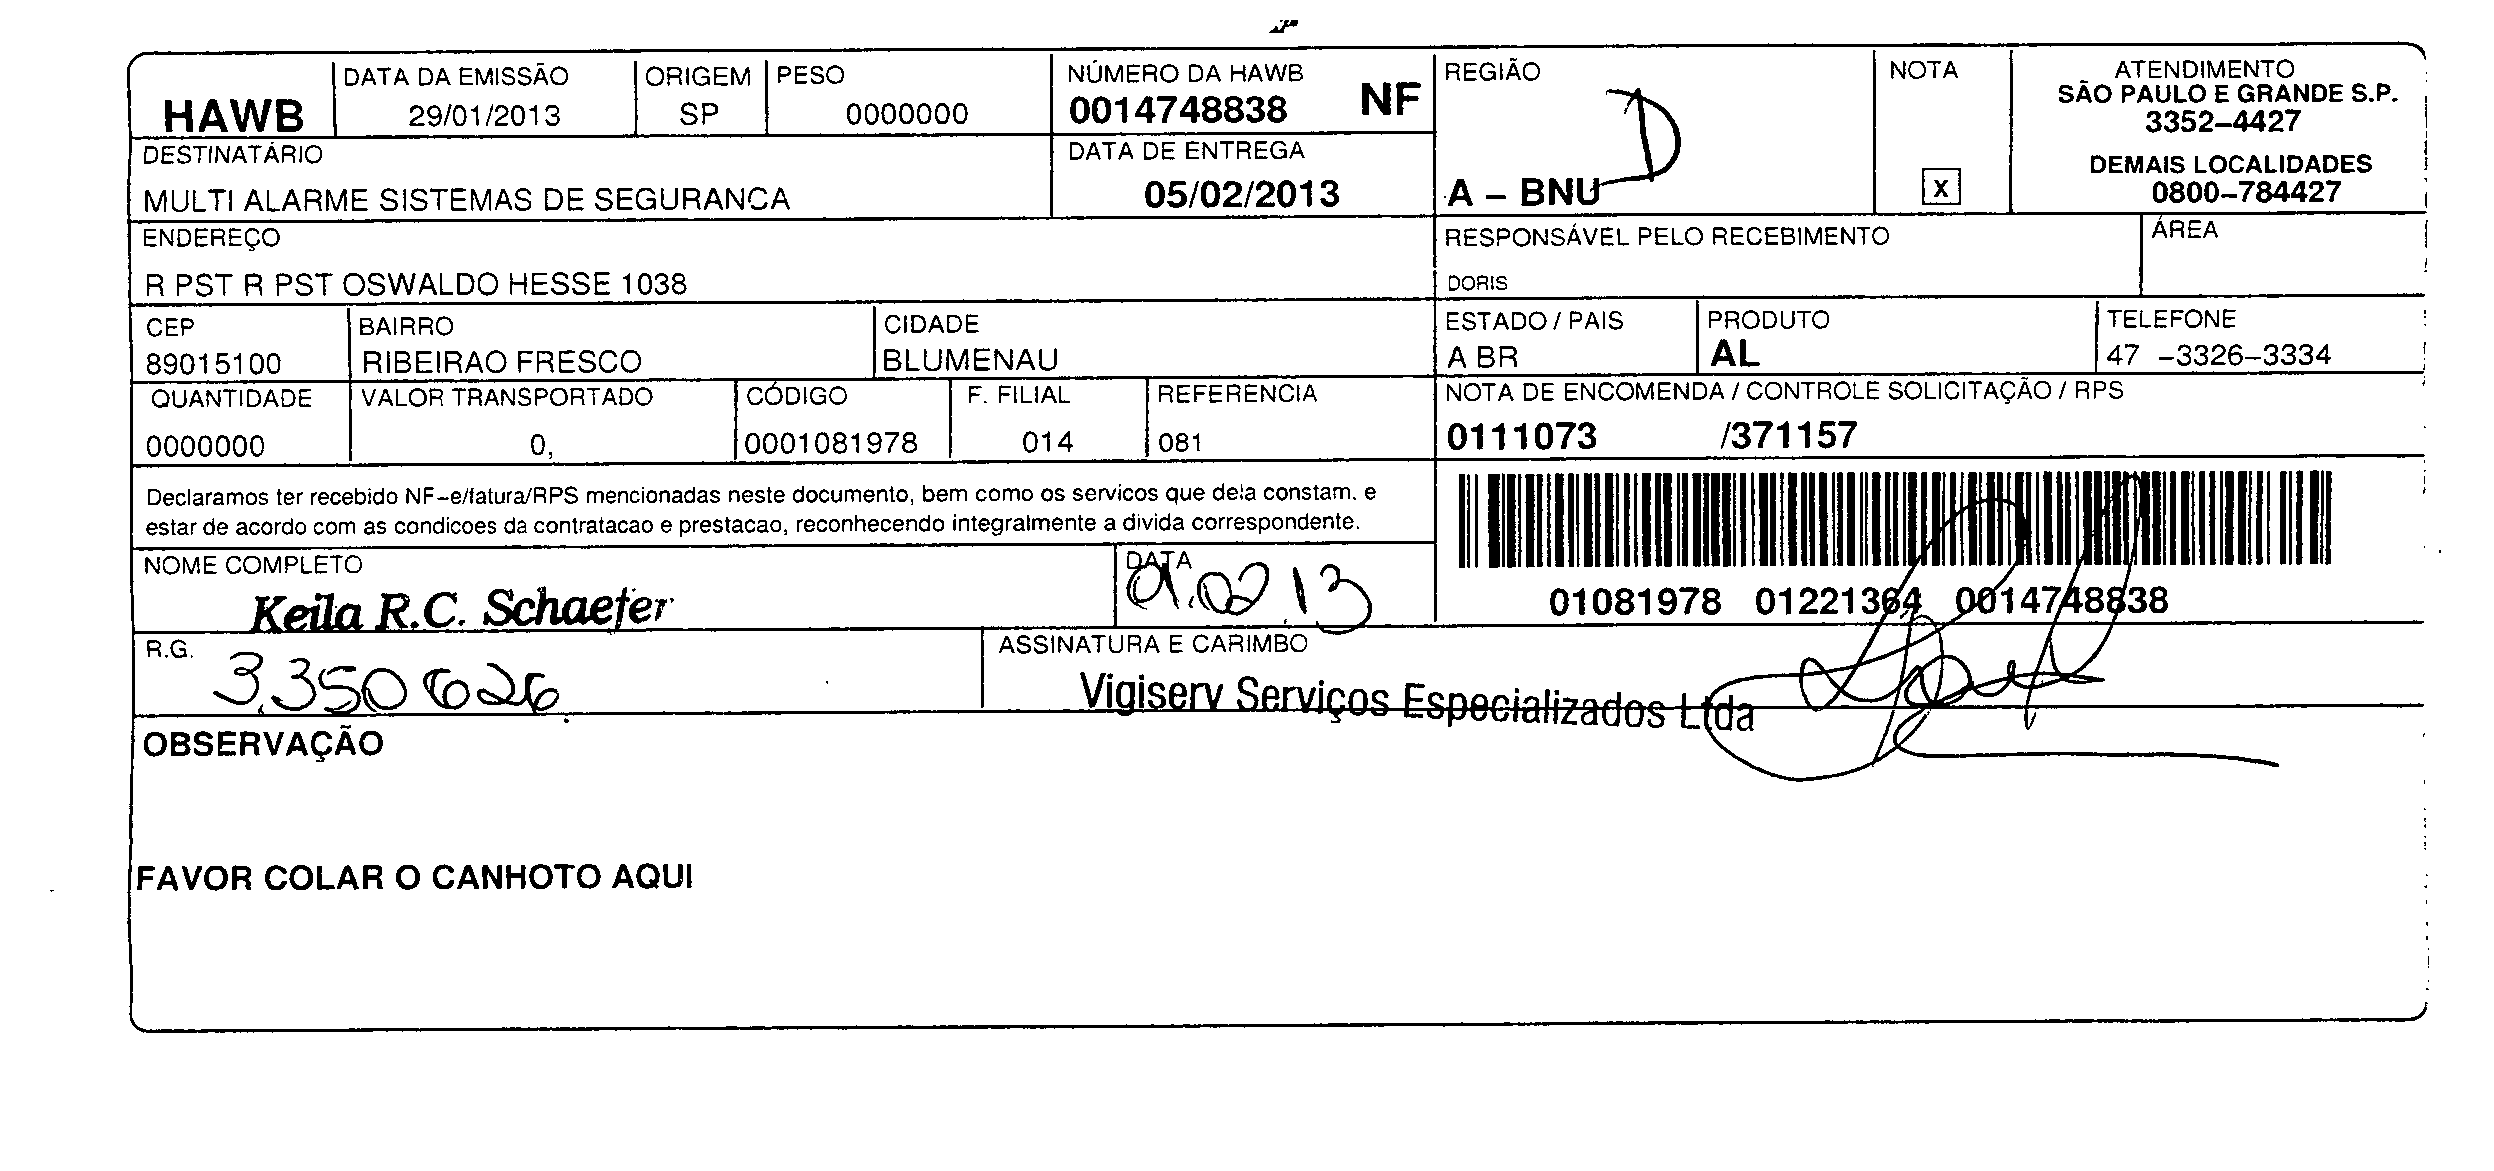 HAWB
DATA DA EMISSÃO
29/01/2013
ORIGEM
SP
PESO
0000000
NÚMERO DA HAWB
0014748838 NF
REGIÃO
A – BNU
D
NOTA
X
ATENDIMENTO
SÃO PAULO E GRANDE S.P.
3352–4427
DEMAIS LOCALIDADES
0800–784427
DESTINATÁRIO
MULTI ALARME SISTEMAS DE SEGURANCA
DATA DE ENTREGA
05/02/2013
ENDEREÇO
R PST R PST OSWALDO HESSE 1038
RESPONSÁVEL PELO RECEBIMENTO
DORIS
ÁREA
CEP
89015100
BAIRRO
RIBEIRAO FRESCO
CIDADE
BLUMENAU
ESTADO / PAIS
A BR
PRODUTO
AL
TELEFONE
47 –3326–3334
QUANTIDADE
0000000
VALOR TRANSPORTADO
0,
CÓDIGO
0001081978
F. FILIAL
014
REFERENCIA
081
NOTA DE ENCOMENDA / CONTROLE SOLICITAÇÃO / RPS
0111073 /371157
Declaramos ter recebido NF–e/fatura/RPS mencionadas neste documento, bem como os servicos que dela constam, e
estar de acordo com as condicoes da contratacao e prestacao, reconhecendo integralmente a divida correspondente.
01081978 01221364 0014748838
NOME COMPLETO
Keila R.C. Schaefer
DATA
R.G.
3.350626
ASSINATURA E CARIMBO
Vigiserv Serviços Especializados Ltda
OBSERVAÇÃO
FAVOR COLAR O CANHOTO AQUI